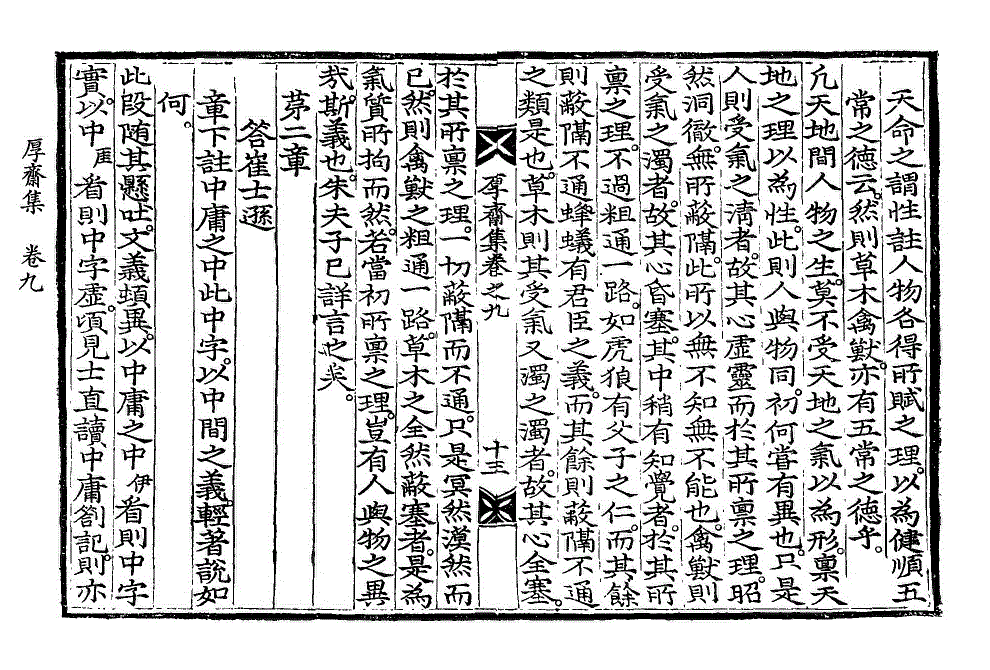 天命之謂性註人物各得所賦之理。以為健順五
常之德云。然則草木禽獸。亦有五常之德乎。
凡天地間人物之生。莫不受天地之氣以為形。稟天
地之理以為性。此則人與物同。初何嘗有異也。只是
人則受氣之淸者。故其心虛靈而於其所稟之理。昭
然洞徹。無所蔽隔。此所以無不知無不能也。禽獸則
受氣之濁者。故其心昏塞。其中稍有知覺者。於其所
稟之理。不過粗通一路。如虎狼有父子之仁。而其餘
則蔽隔不通。蜂蟻有君臣之義。而其餘則蔽隔不通
之類是也。草木則其受氣又濁之濁者。故其心全塞。
厚齋集卷之九 十三
於其所稟之理。一切蔽隔而不通。只是冥然漠然而
已。然則禽獸之粗通一路。草木之全然蔽塞者。是為
氣質所拘而然。若當初所稟之理。豈有人與物之異
哉。斯義也。朱夫子已詳言之矣。
第二章
答崔士遜
章下註中庸之中此中字。以中間之義輕著說如
何。
此段随其懸吐。文義頓異。以中庸之中伊看則中字
實。以中厓看則中字虛。頃見士直讀中庸箚記。則亦
厚齋集 卷九